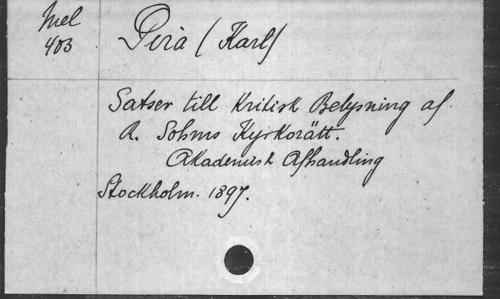 Mel
403
Pira (Karl)
Satser till Kritisk Belysning af
R. Sohms Kyrkorätt.
Akademisk Afhandling
Stockholm. 1897.